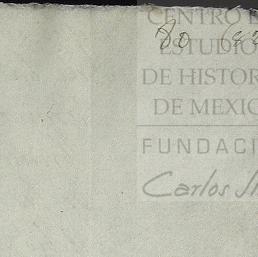 80
CENTRO
ESTUDIO
DE HISTOR
DE MEXIC
FUNDACI
Carlos